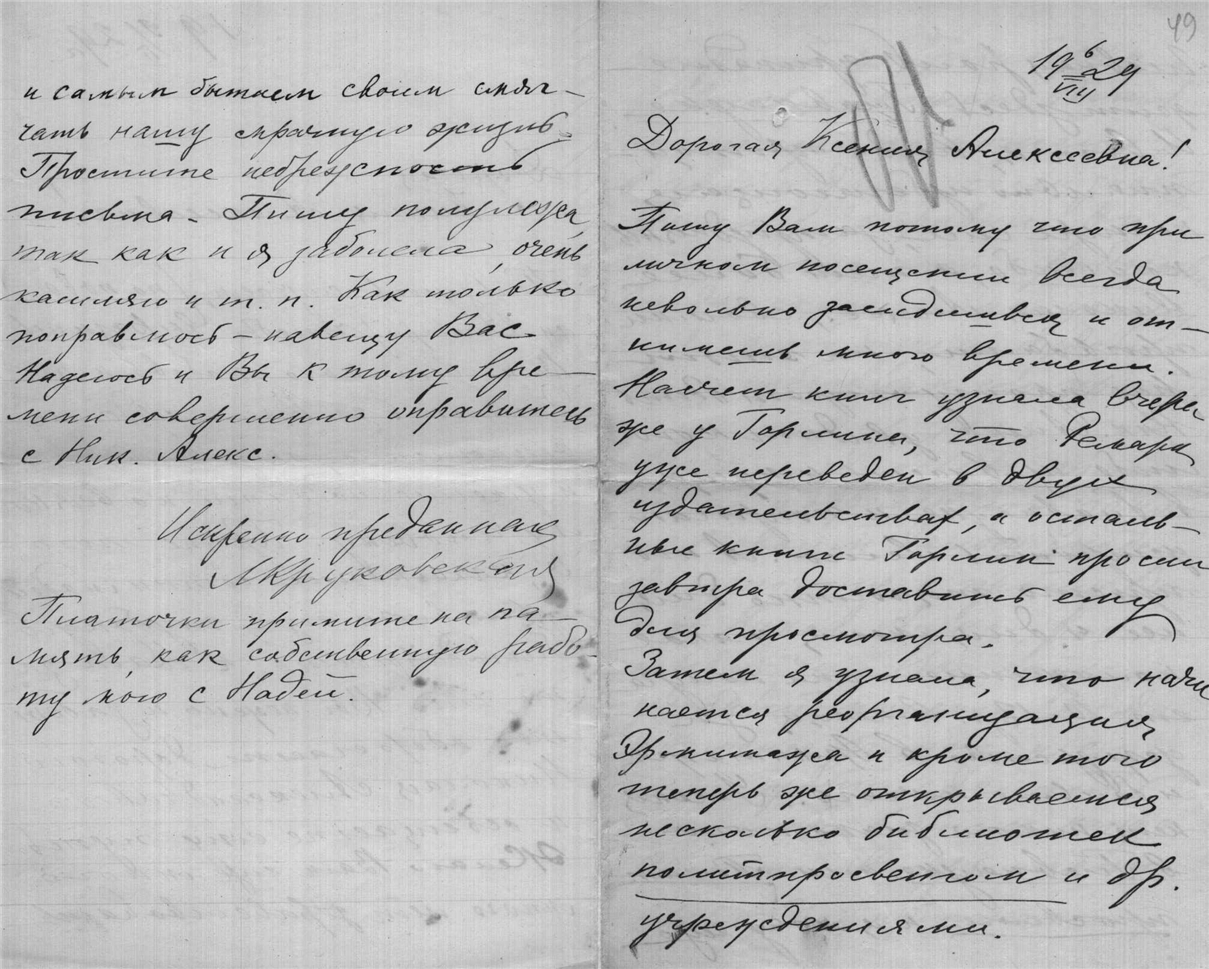 49
19 6/VIII 29
Дорогая Ксения Алексеевна!
Пишу Вам потому что при
личном посещении всегда
невольно засидишься и от-
нимешь много времени.
Насчет книг узнала вчера
же у Горлина, что Ремарк
уже переведен в двух
издательствах, а осталь-
ные книги Горлин просил
завтра доставить ему
для просмотра.
Затем я узнала, что начи
нается реорганизация
Эрмитажа и кроме того
теперь же открывается
несколько библиотек
политпросветом и др.
учреждениями.
и самым бытием своим смяг-
чать нашу мрачную жизнь.
Простите небрежность
письма. Пишу полулежа,
так как и я заболела, очень
кашляю и т. п. Как только
поправлюсь – навещу Вас
Надеюсь и Вы к тому вре-
мени совершенно оправитесь
с Ник. Алекс.
Искренно преданная
МКруковская
Платочки примите на па-
мять, как собственную рабо-
ту мою с Надей.